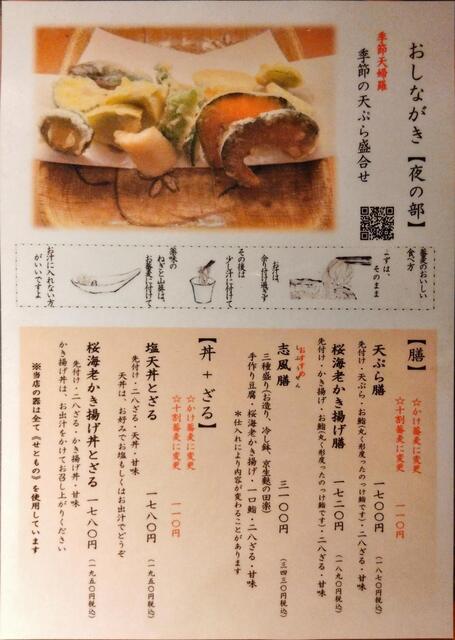 おしながき【夜の部】
季節天婦羅
季節の天ぷら盛合せ
蕎麦のおいしい
食べ方
まずは、
そのまま
お汁は、
余り付け過ぎず
その後は
少し汁に付けて
薬味の
ねぎと山葵は、
お蕎麦に付けて
お汁に入れない方
がいいですよ
【膳】
☆かけ蕎麦に変更
☆十割蕎麦に変更 一一〇円
天ぷら膳 一七〇〇円 (一八七〇円税込)
先付け・天ぷら・お鮨(丸く形度ったのっけ鮨です)・二八ざる・甘味
桜海老かき揚げ膳 一七二〇円 (一八九〇円税込)
先付け・かき揚げ・お鮨(丸く形度ったのっけ鮨です)・二八ざる・甘味
おすすめ
志風膳 三一〇〇円 (三四三〇円税込)
三種盛り(お造り、冷し鉢、京生麩の田楽)
手作り豆腐・桜海老かき揚げ・一口鮨・二八ざる・甘味
*仕入れにより内容が変わることがあります
【丼+ざる】
☆かけ蕎麦に変更
☆十割蕎麦に変更 一一〇円
塩天丼とざる 一七八〇円 (一九五〇円税込)
先付け・二八ざる・天丼・甘味
天丼は、お好みでお塩もしくはお出汁でどうぞ
桜海老かき揚げ丼とざる 一七八〇円 (一九五〇円税込)
先付け・二八ざる・かき揚げ丼・甘味
かき揚げ丼は、お出汁をかけてお召し上がりください
※当店の器は全て《せともの》を使用しています